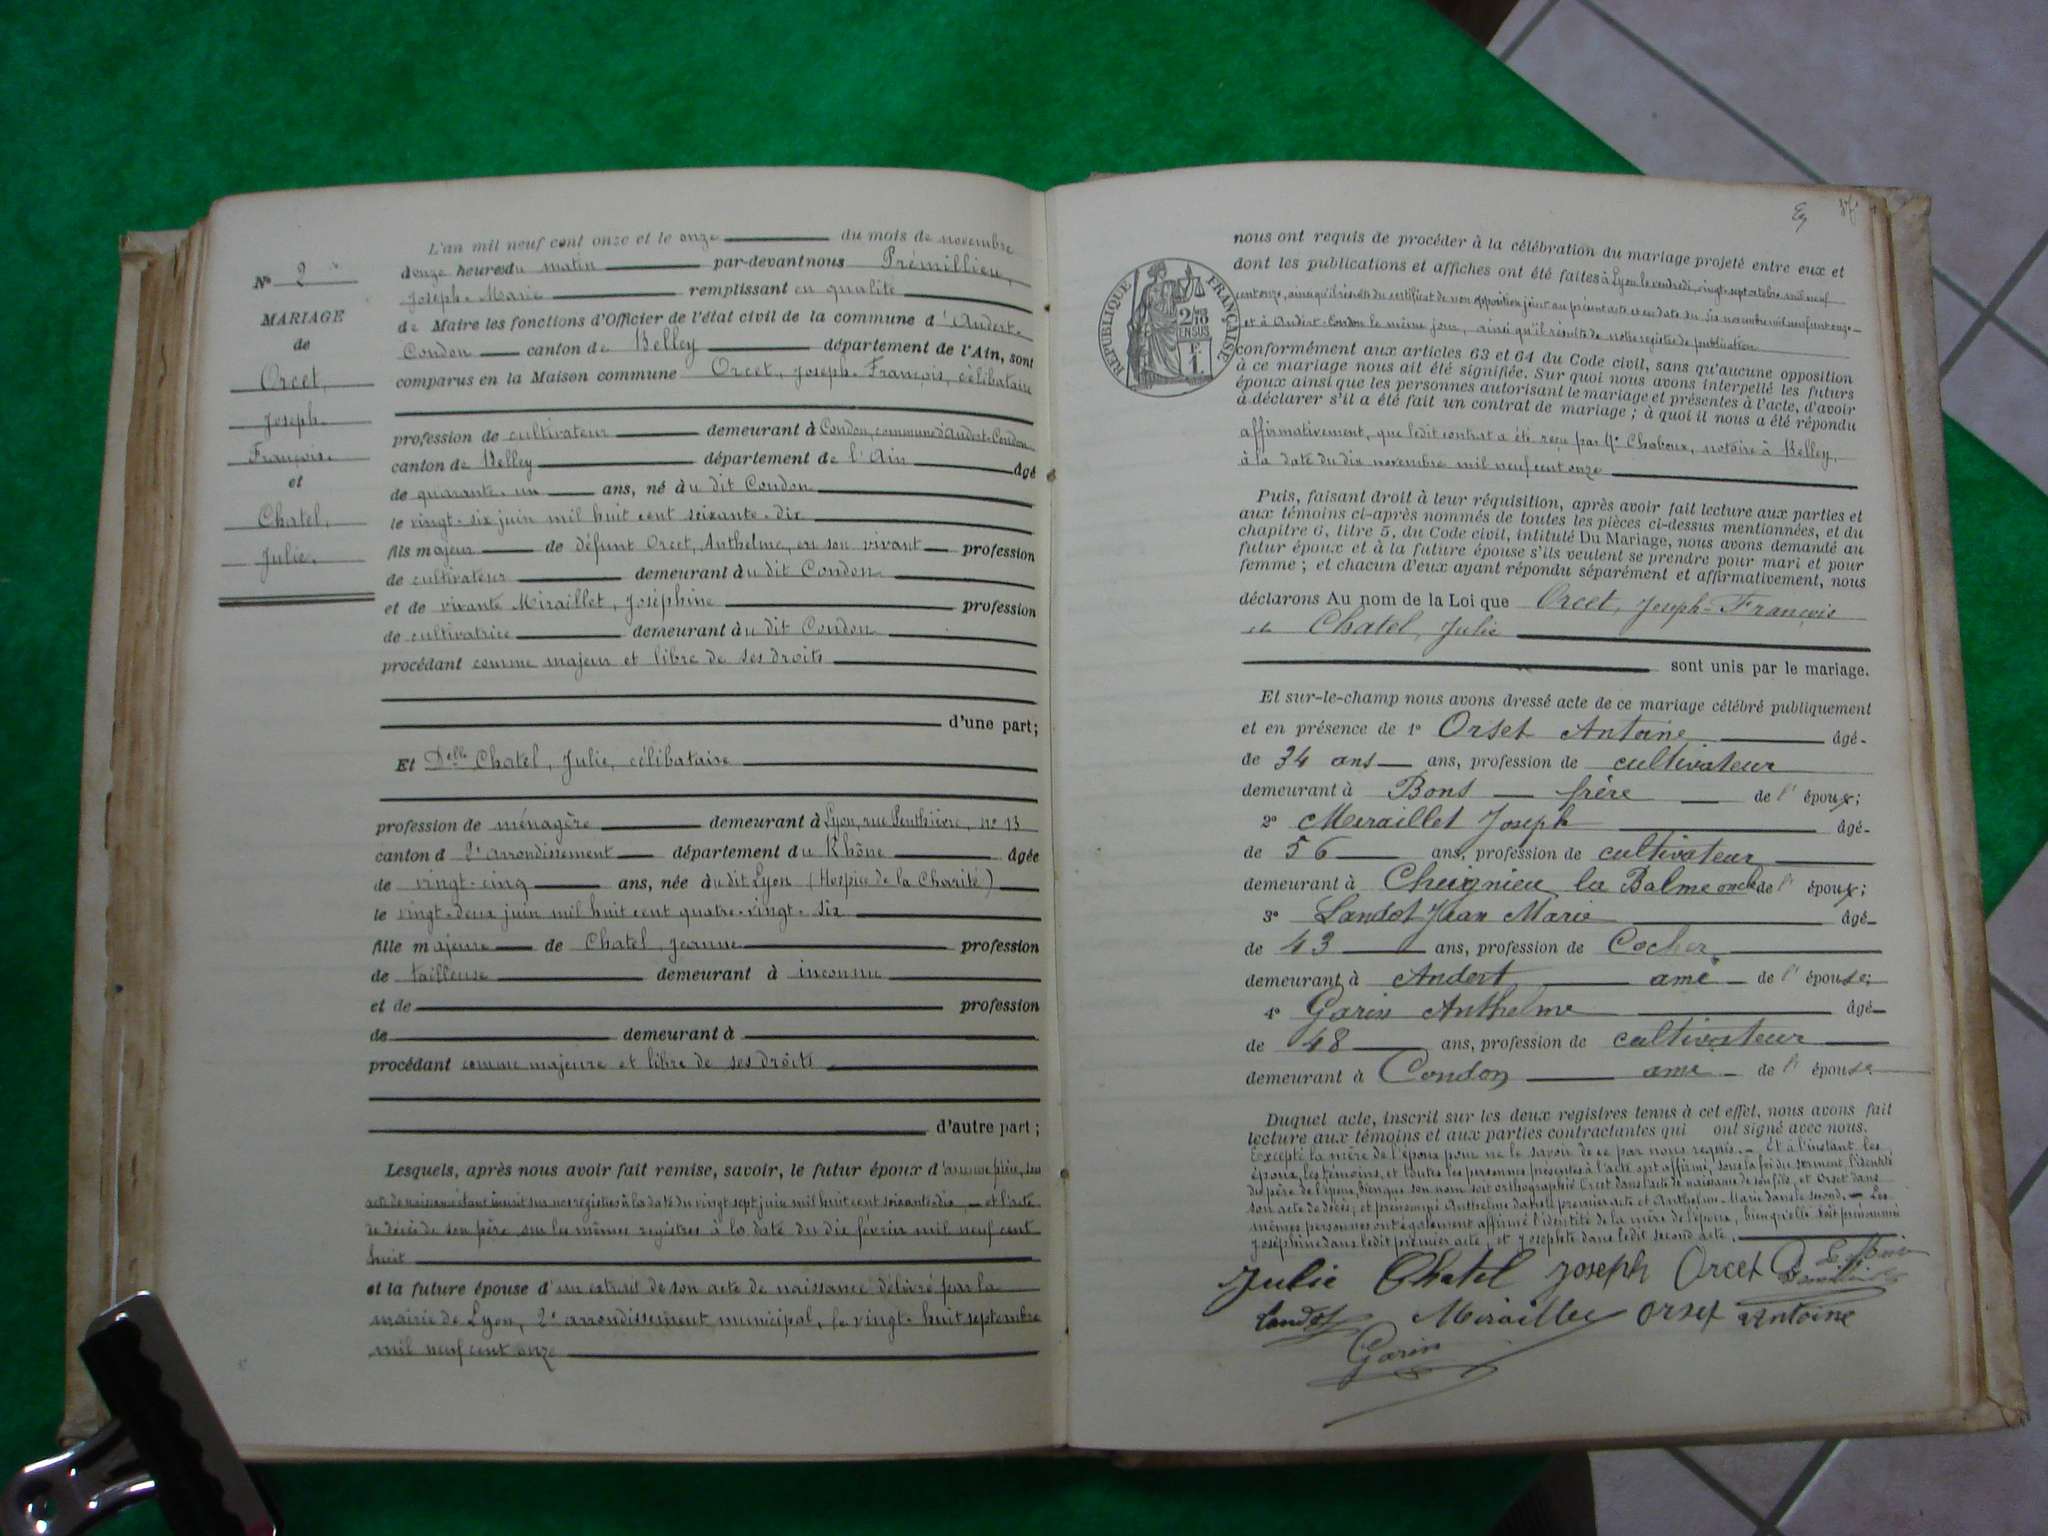 Nº 2
MARIAGE
de
Orcet,
Joseph-
François.
et
Chatel,
Julie.
L'an mil neuf cent onze et le onze du mois de novembre
douze heures du matin par-devant nous Prémillieu,
Joseph-Marie remplissant en qualité
de Maire les fonctions d'Officier de l'état civil de la commune d'Andert-
Condon canton de Belley département de l'Ain, sont
comparus en la Maison commune Orcet, Joseph-François, célibataire
profession de cultivateur demeurant à Condon, commune d'Andert-Condon
canton de Belley département de l'Ain âgé
de quarante-un ans, né au dit Condon
le vingt-six juin mil huit cent soixante-dix
fils majeur de défunt Orcet, Anthelme, en son vivant profession
de cultivateur demeurant au dit Condon
et de vivante Miraillet, Joséphine profession
de cultivatrice demeurant au dit Condon
procédant comme majeur et libre de ses droits
d'une part;
Et Delle Chatel, Julie, célibataire
profession de ménagère demeurant à Lyon, rue Penthièvre, nº 13
canton d 2e arrondissement département du Rhône âgée
de vingt-cinq ans, née au dit Lyon (Hospice de la Charité)
le vingt-deux juin mil huit cent quatre-vingt-six
fille majeure de Chatel, Jeanne profession
de tailleuse demeurant à inconnu
et de profession
de demeurant à
procédant comme majeure et libre de ses droits
d'autre part;
Lesquels, après nous avoir fait remise, savoir, le futur époux d'aucune pièce, son
acte de naissance étant inscrit sur nos registres à la date du vingt sept juin mil huit cent soixante-dix et l'acte
de décès de son père sur les mêmes registres à la date du dix février mil neuf cent
huit
et la future épouse d'un extrait de son acte de naissance délivré par la
mairie de Lyon, 2e arrondissement municipal, le vingt-huit septembre
mil neuf cent onze
37
RÉPUBLIQUE FRANÇAISE
2/10 EN SUS
F. 1.
nous ont requis de procéder à la célébration du mariage projeté entre eux et
dont les publications et affiches ont été faites à Lyon le vendredi, vingt-sept octobre mil neuf
cent onze, ainsi qu'il résulte du certificat de non opposition joint au présent acte et en date du six novembre mil neuf cent onze
et à Andert-Condon le même jour, ainsi qu'il résulte de notre registre de publication
conformément aux articles 63 et 64 du Code civil, sans qu'aucune opposition
à ce mariage nous ait été signifiée. Sur quoi nous avons interpellé les futurs
époux ainsi que les personnes autorisant le mariage et présentes à l'acte, d'avoir
à déclarer s'il a été fait un contrat de mariage; à quoi il nous a été répondu
affirmativement, que ledit contrat a été reçu par Me Chaboux, notaire à Belley,
à la date du dix novembre mil neuf cent onze
Puis, faisant droit à leur réquisition, après avoir fait lecture aux parties et
aux témoins ci-après nommés de toutes les pièces ci-dessus mentionnées, et du
chapitre 6, titre 5, du Code civil, intitulé Du Mariage, nous avons demandé au
futur époux et à la future épouse s'ils veulent se prendre pour mari et pour
femme; et chacun d'eux ayant répondu séparément et affirmativement, nous
déclarons Au nom de la Loi que Orcet, Joseph-François
et Chatel, Julie
sont unis par le mariage.
Et sur-le-champ nous avons dressé acte de ce mariage célébré publiquement
et en présence de 1º Orset Antoine âgé-
de 34 ans ans, profession de cultivateur
demeurant à Bons frère de l'époux;
2º Meraillet Joseph âgé-
de 56 ans, profession de cultivateur
demeurant à Cheignieu la Balme oncle de l'époux;
3º Landot Jean Marie âgé-
de 43 ans, profession de Cocher
demeurant à Andert ami de l'épouse;
4º Garin Anthelme âgé-
de 48 ans, profession de cultivateur
demeurant à Condon ami de l'épouse
Duquel acte, inscrit sur les deux registres tenus à cet effet, nous avons fait
lecture aux témoins et aux parties contractantes qui ont signé avec nous.
Excepté la mère de l'époux pour ne le savoir de ce par nous requis. Et à l'instant les
époux, les témoins, et toutes les personnes présentes à l'acte ont affirmé, sous la foi du serment, l'identité
du père de l'époux, bien que son nom soit orthographié Orcet dans l'acte de naissance de son fils, et Orset dans
son acte de décès; et prénommé Anthelme dans le premier acte et Anthelme-Marie dans le second. Les
mêmes personnes ont également affirmé l'identité de la mère de l'époux, bien qu'elle soit prénommée
Joséphine dans ledit premier acte, et Josephte dans ledit second acte.
Julie Chatel Joseph Orcet Le Maire
Landot Meraillet Orset Antoine
Garin